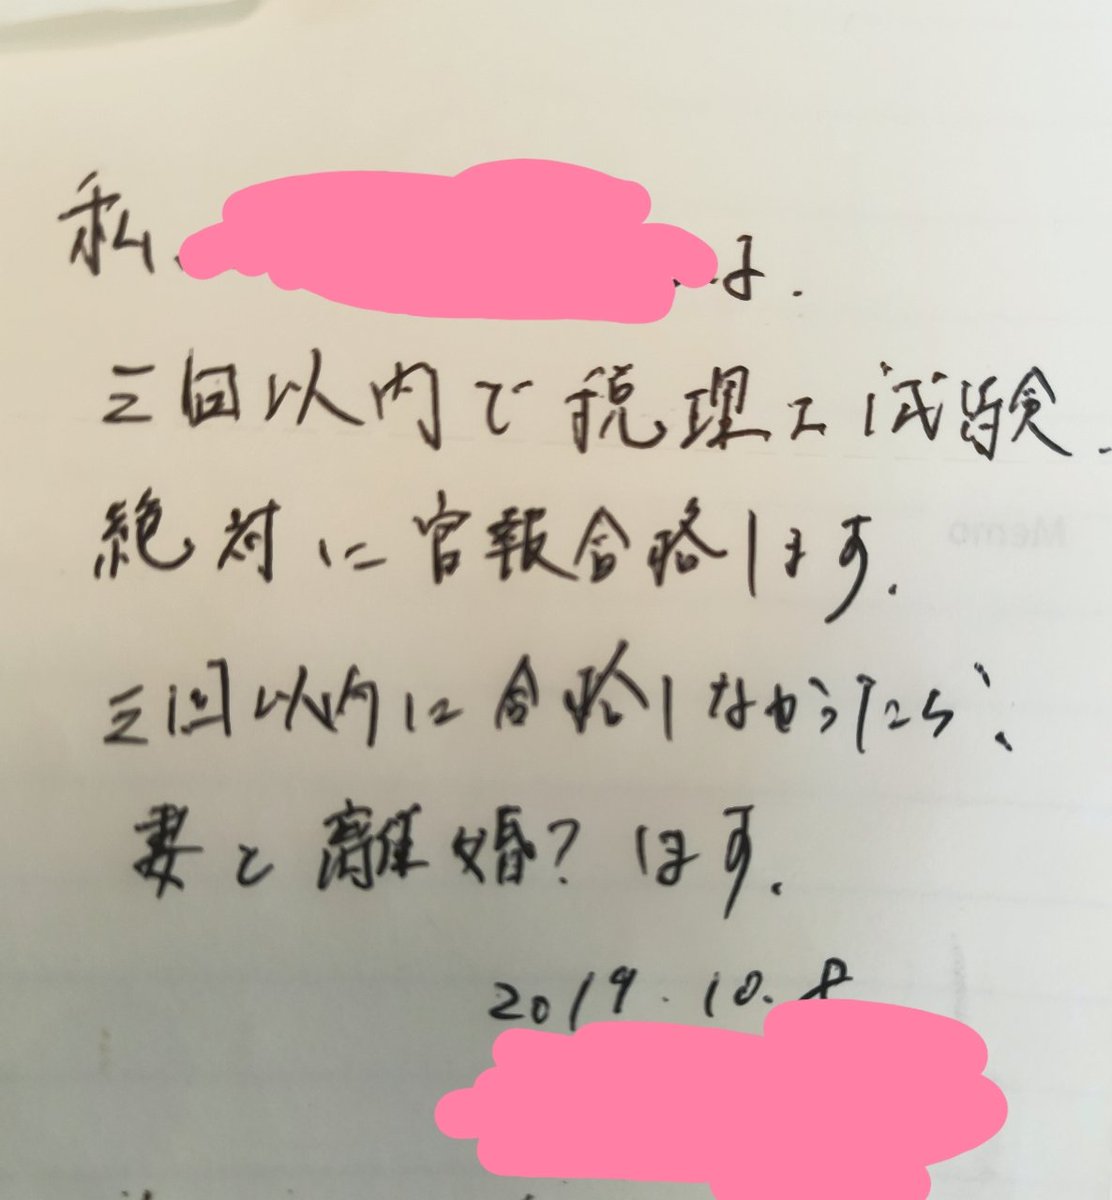 私、は、
三回以内で税理士試験、
絶対に官報合格します。
三回以内に合格しなかったら、
妻と離婚?します。
2019.10.8
Memo